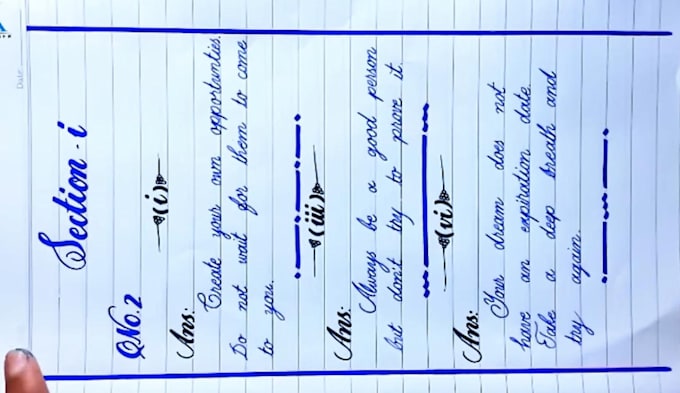 Date:
Section - i
QNo.2
(i)
Ans:
Create your own opportunities.
Do not wait for them to come
to you.
(iii)
Ans:
Always be a good person
but don't try to prove it.
(vi)
Ans:
Your dream does not
have an expiration date.
Take a deep breath and
try again.